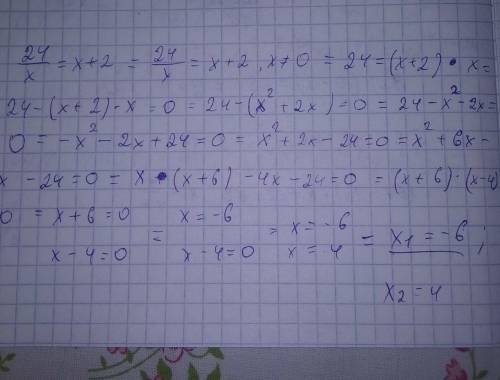 24/x = x+2 = 24/x = x+2, x≠0 = 24 = (x+2) • x =
24-(x+2)-x = 0 = 24-(x²+2x) = 0 = 24-x²-2x =
0 = -x²-2x+24=0 = x²+2x-24=0 = x²+6x-
x -24=0 = x•(x+6) -4x-24=0 = (x+6)·(x-4)
0 = x+6=0 = x=-6 = x=-6 = x₁=-6;
x-4=0 x-4=0 x=4
x₂=4